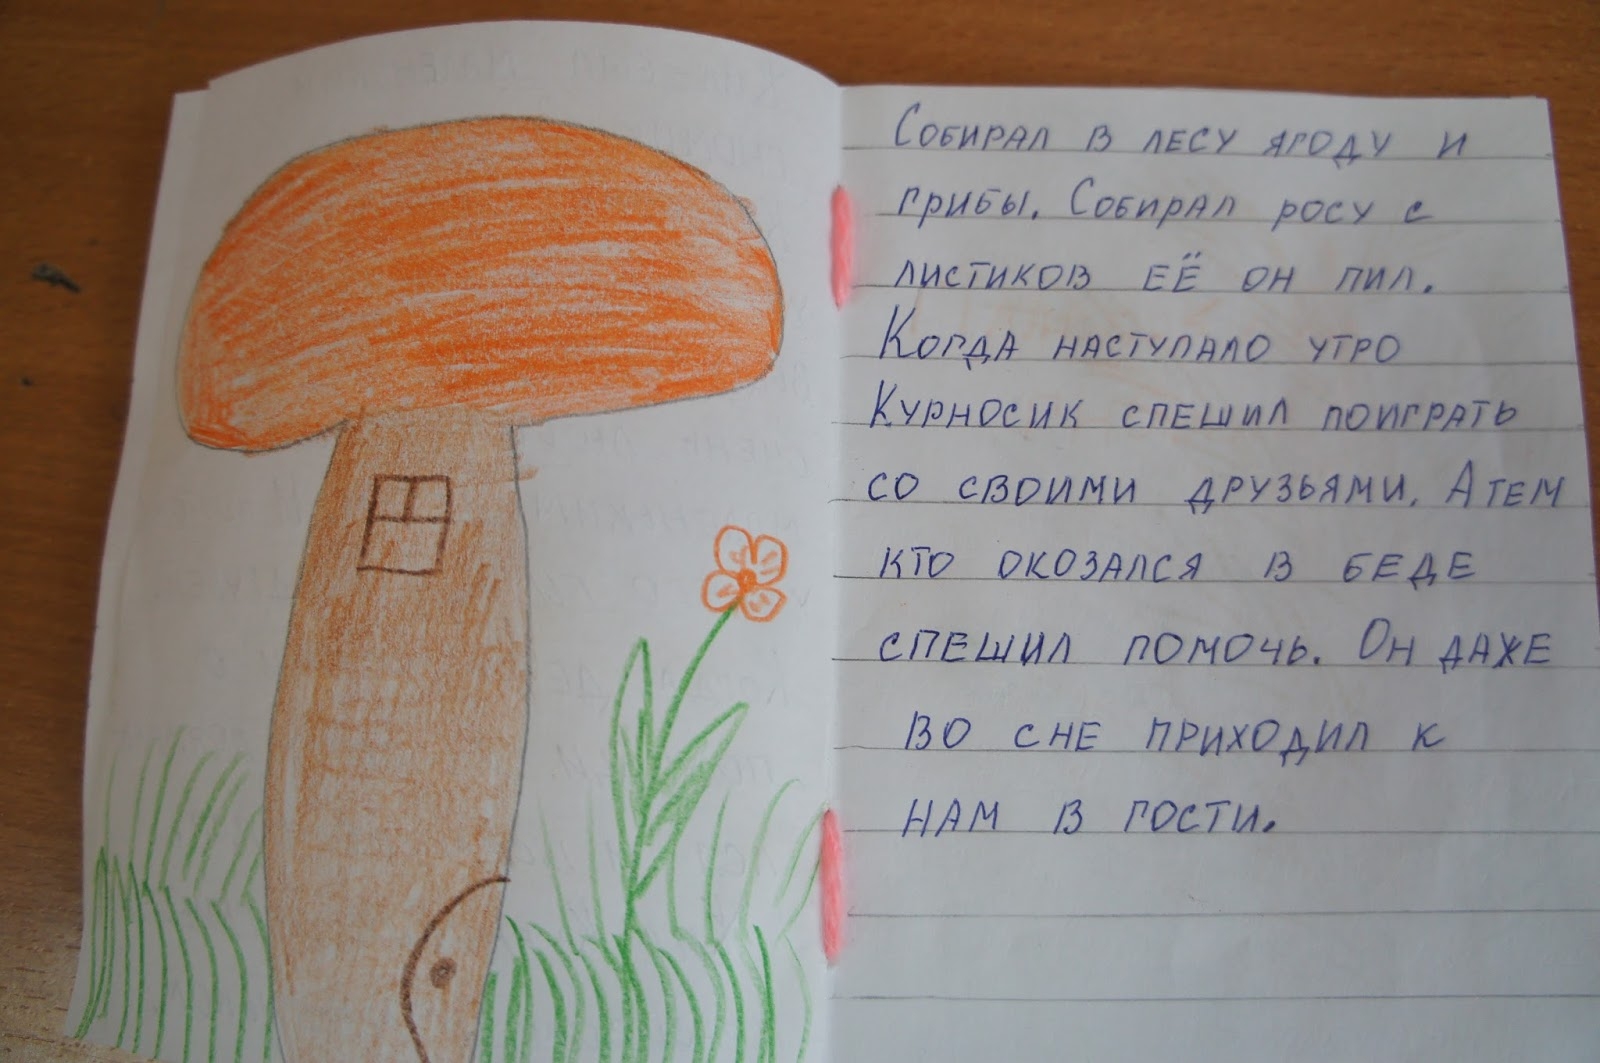 Собирал в лесу ягоду и
грибы. Собирал росу с
листиков её он пил.
Когда наступало утро
Курносик спешил поиграть
со своими друзьями. Атем
кто окозался в беде
спешил помочь. Он даже
во сне приходил к
нам в гости.